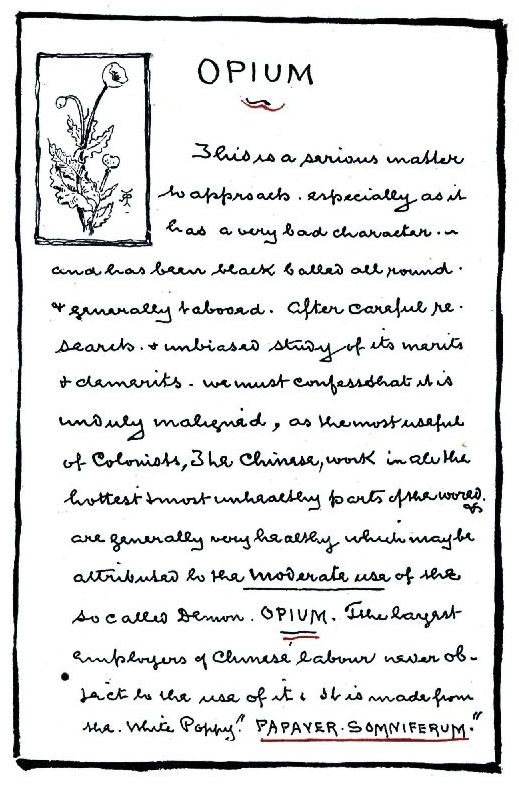 OPIUM
This is a serious matter
to approach. especially as it
has a very bad character. ~
and has been black balled all round.
& generally tabooed. After careful re-
search. & unbiased study of its merits
& demerits - we must confess that it is
unduly maligned, as the most useful
of Colonists, The Chinese, work in all the
hottest & most unhealthy parts of the world. &
are generally very healthy which may be
attributed to the moderate use of the
so called Demon. OPIUM. The largest
Employers of Chinese labour never ob-
ject to the use of it: It is made from
the. White Poppy." PAPAVER. SOMNIFERUM."